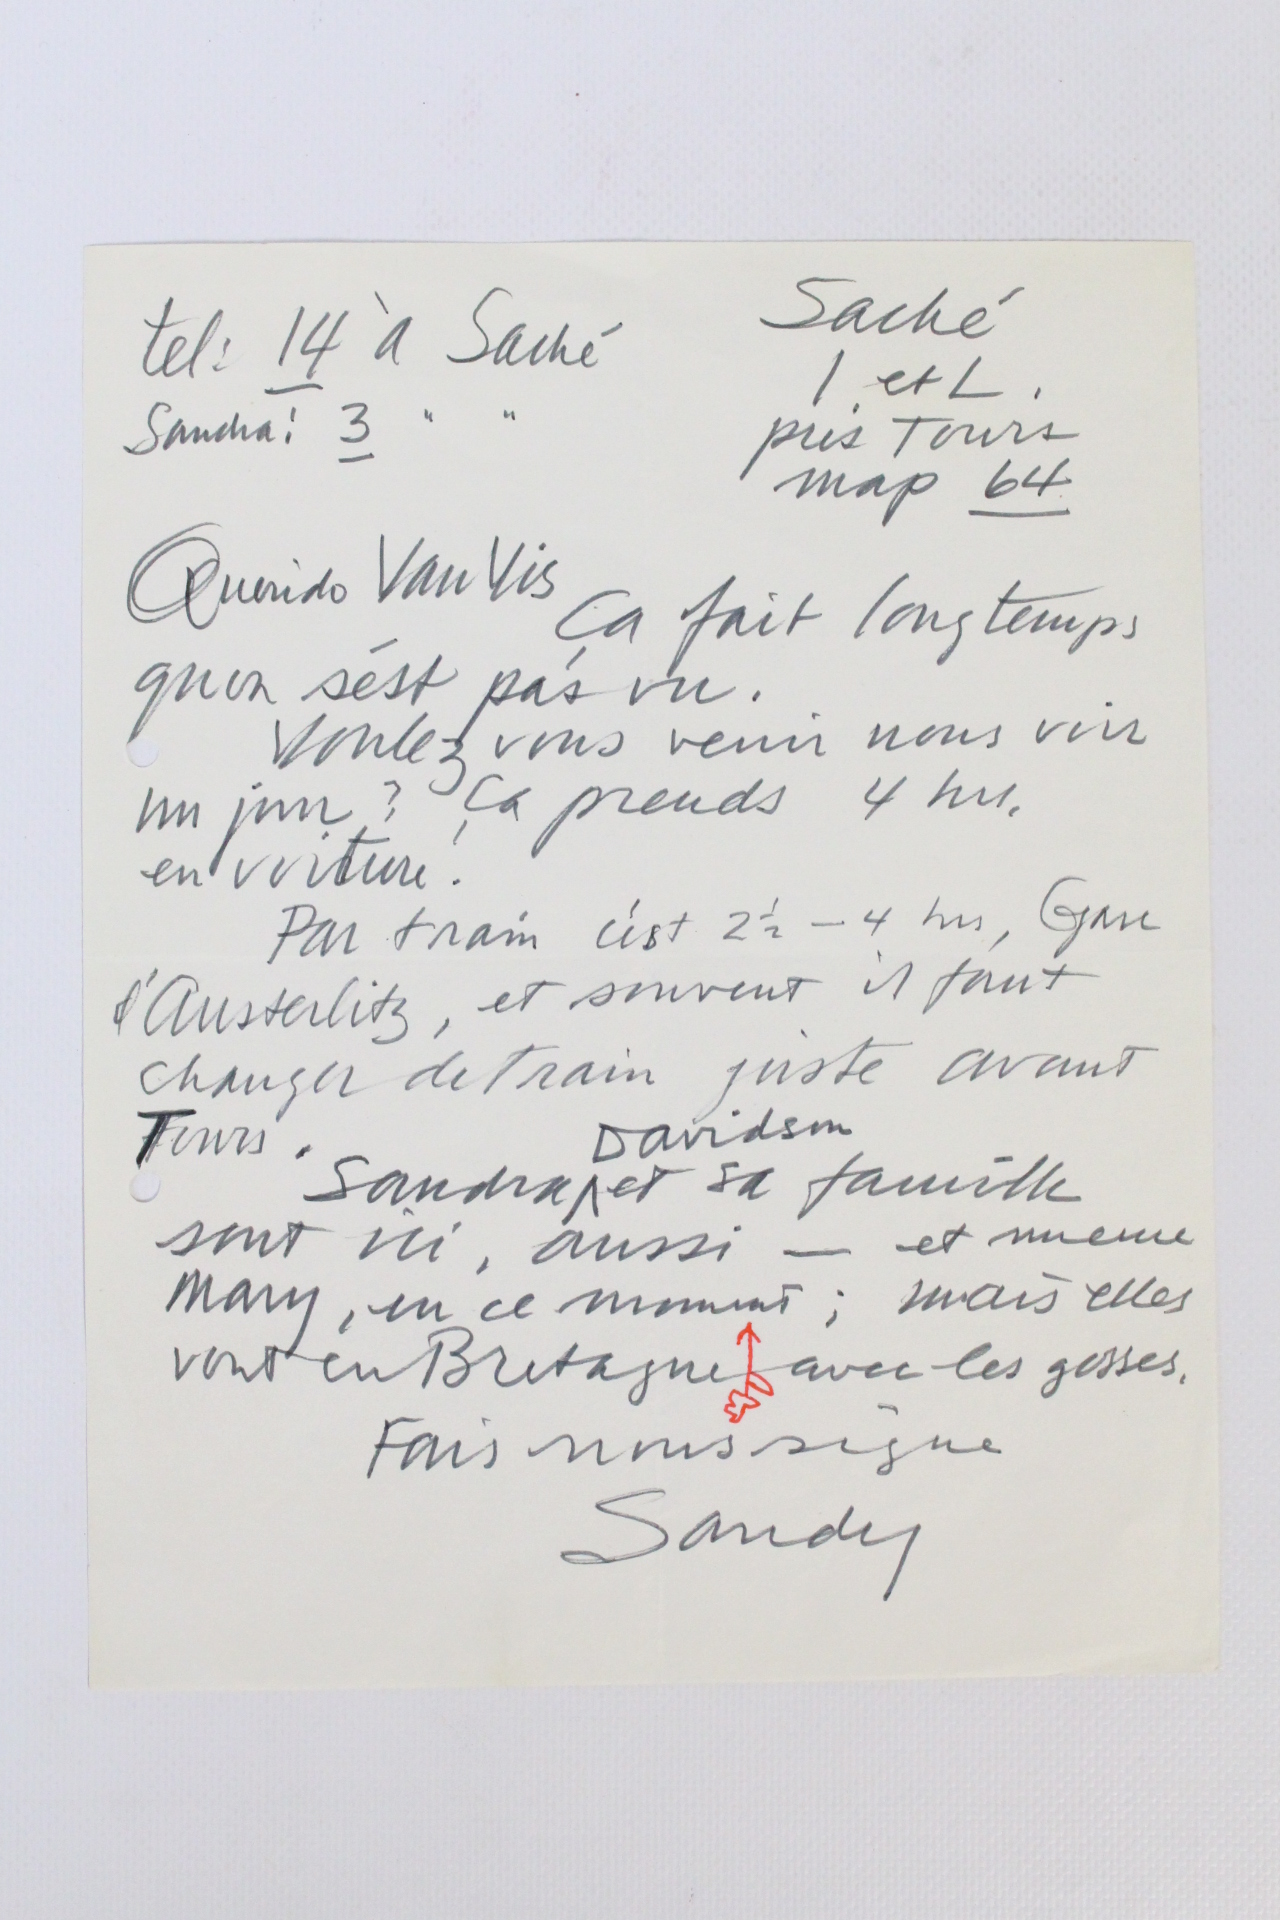 tel: 14 à Saché
Sandra: 3 " "
Saché
I et L.
près Tours
map 64
Querido Van Vis
Ça fait longtemps
quon sést pas vu.
Voulez vous venir nous voir
un jour? Ça prends 4 hrs.
en voiture.
Par train c'est 2½ – 4 hrs, Gare
d'Austerlitz, et souvent il faut
changer de train juste avant
Tours.
Davidson
Sandra ^ et sa famille
sont ici, aussi — et meme
Mary, en ce moment; mais elles
vont en Bretagne avec les gosses.
Fais nous signe
Sandy